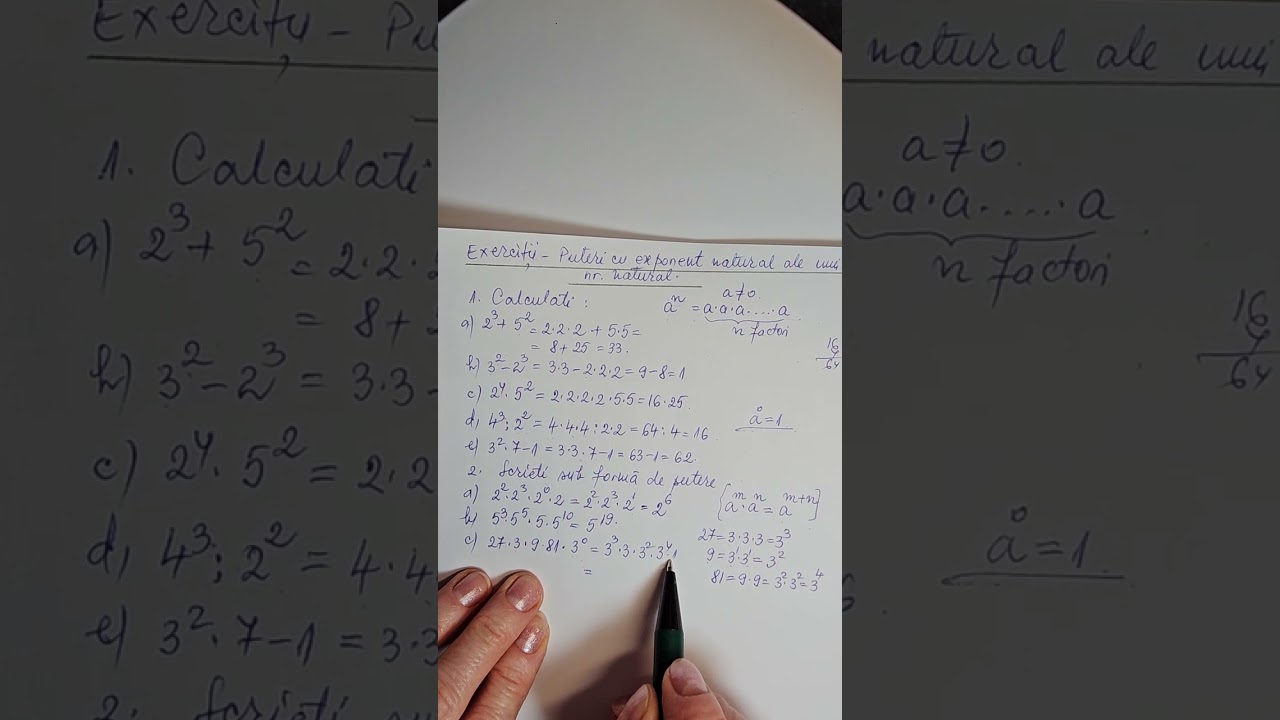 Exerciții - Puteri cu exponent natural ale unui
nr. natural.
1. Calculati :
a ≠ 0.
aⁿ = a·a·a·....·a
n factori
a) 2³ + 5² = 2·2·2 + 5·5 =
= 8 + 25 = 33.
b) 3² - 2³ = 3·3 - 2·2·2 = 9 - 8 = 1
16
4
64
c) 2⁴ · 5² = 2·2·2·2·5·5 = 16·25.
d) 4³ : 2² = 4·4·4 : 2·2 = 64 : 4 = 16.
a⁰ = 1
e) 3² · 7 - 1 = 3·3·7 - 1 = 63 - 1 = 62.
2. Scrieti sub formă de putere
a) 2² · 2³ · 2⁰ · 2 = 2² · 2³ · 2¹ = 2⁶
[aᵐ · aⁿ = aᵐ⁺ⁿ]
b) 5³ · 5⁵ · 5 · 5¹⁰ = 5¹⁹.
27 = 3·3·3 = 3³
c) 27 · 3 · 9 · 81 · 3⁰ = 3³ · 3 · 3² · 3⁴ · 1
9 = 3¹·3¹ = 3²
=
81 = 9·9 = 3²·3² = 3⁴